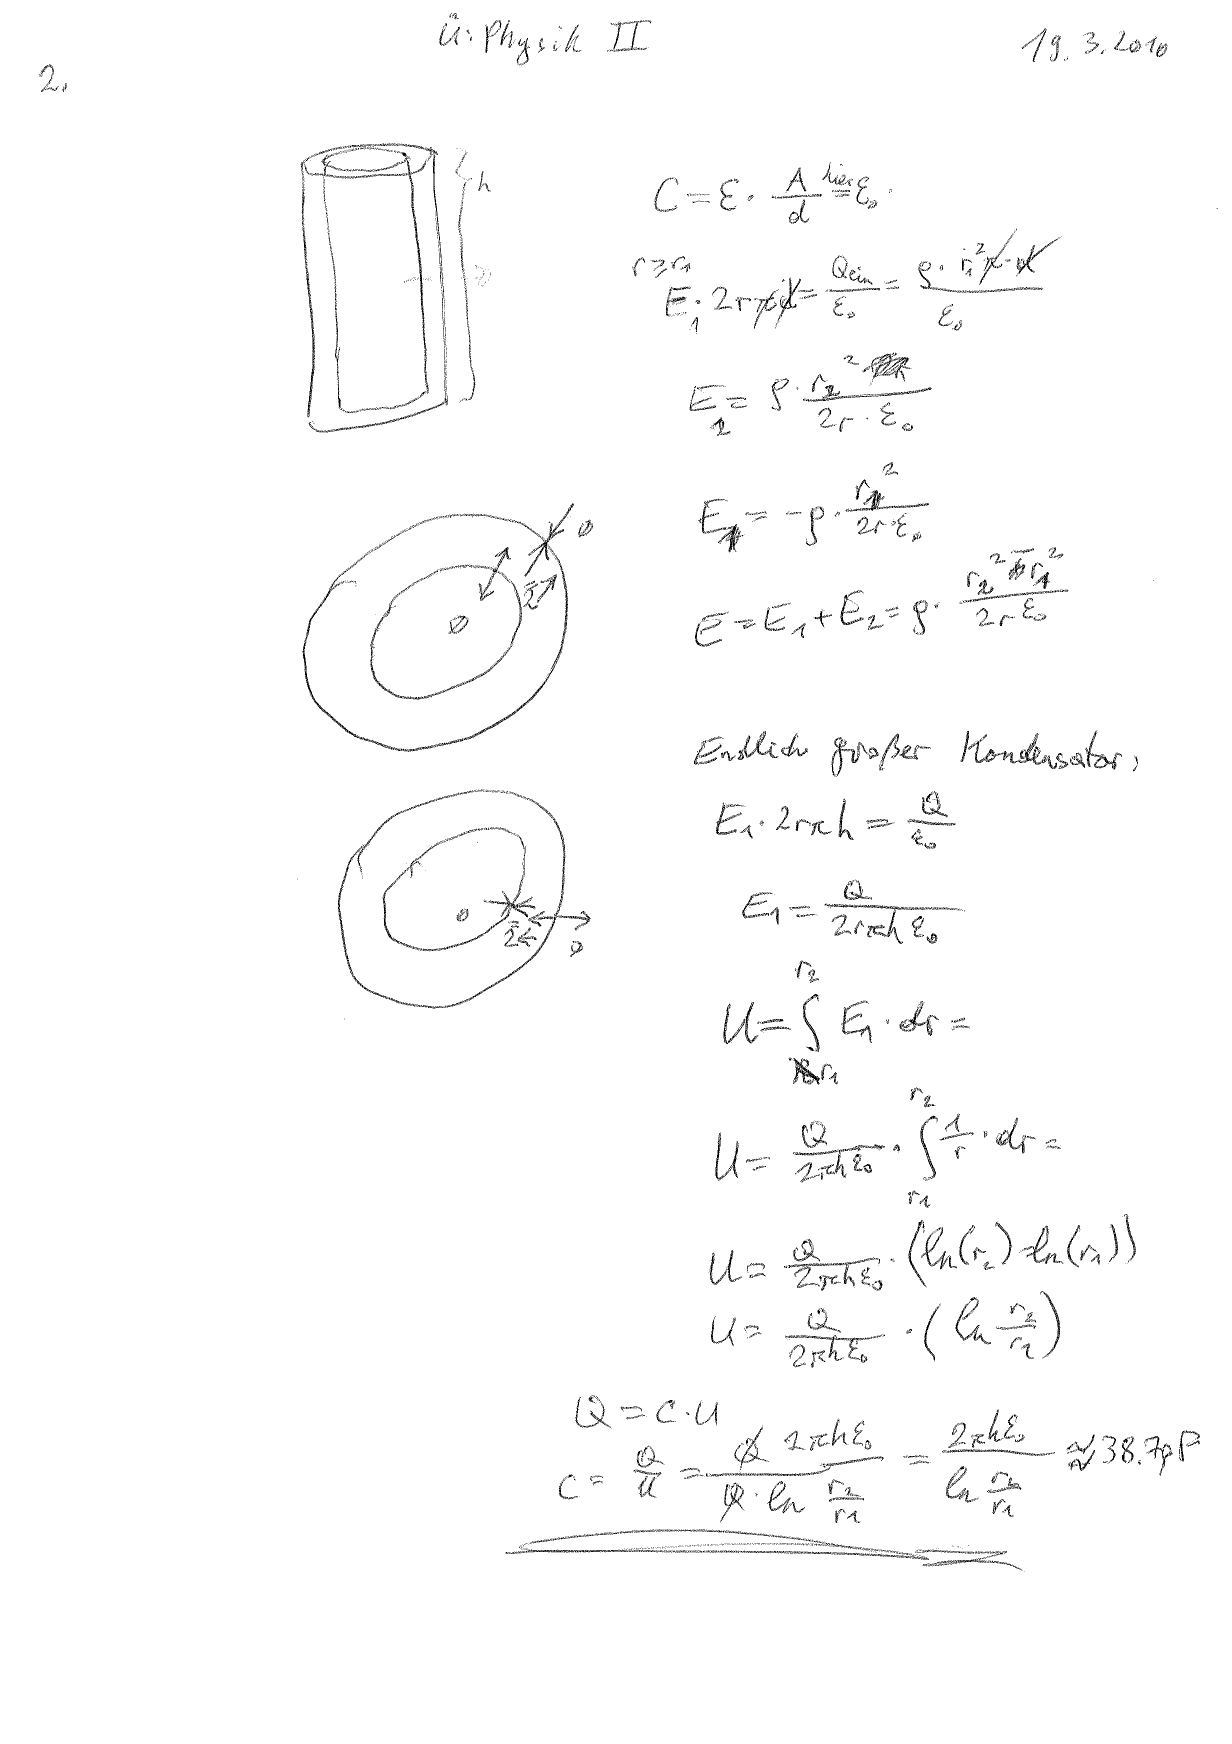 Ü: Physik II
19.3.2010
2.
h
C = ε · A/d hier= ε₀ ·
r ≥ r₁
E₁ · 2rπd = Qein/ε₀ = ρ · r₁²π·d/ε₀
E₂ = ρ · r₂²/2r·ε₀
E₁ = -ρ · r₁²/2r·ε₀
E = E₁ + E₂ = ρ · r₂² - r₁²/2rε₀
Endlich großer Kondensator,
E₁ · 2rπh = Q/ε₀
E₁ = Q/2rπhε₀
U = ∫ r₁ r₂ E₁ · dr =
U = Q/2πhε₀ · ∫ r₁ r₂ 1/r · dr =
U = Q/2πhε₀ · (ln(r₂) - ln(r₁))
U = Q/2πhε₀ · (ln r₂/r₁)
Q = C·U
C = Q/U = Q 2πhε₀/Q · ln r₂/r₁ = 2πhε₀/ln r₂/r₁ ≈ 38.7pF